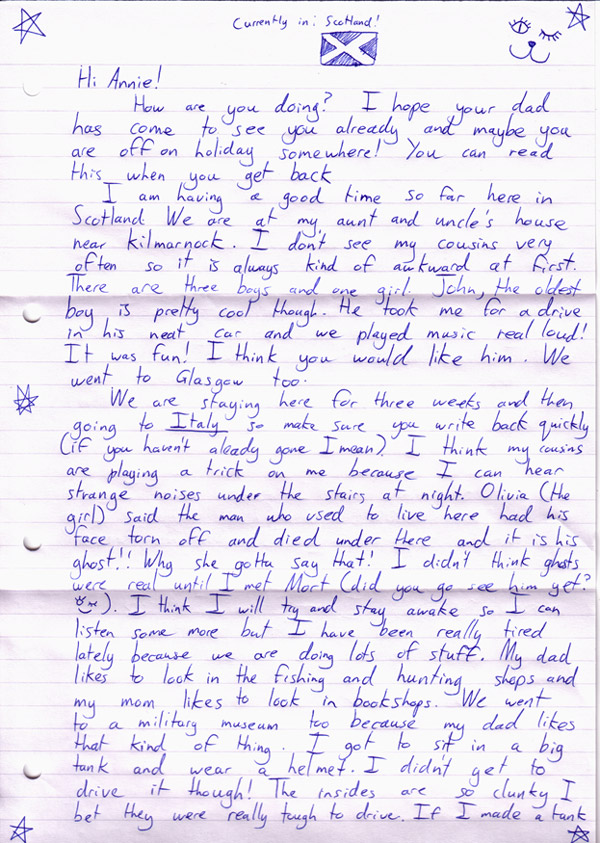 Currently in: Scotland!
Hi Annie!
How are you doing? I hope your dad
has come to see you already and maybe you
are off on holiday somewhere! You can read
this when you get back
I am having a good time so far here in
Scotland. We are at my aunt and uncle's house
near Kilmarnock. I don't see my cousins very
often so it is always kind of awkward at first.
There are three boys and one girl. John, the oldest
boy is pretty cool though. He took me for a drive
in his neat car and we played music real loud!
It was fun! I think you would like him. We
went to Glasgow too.
We are staying here for three weeks and then
going to Italy so make sure you write back quickly
(if you haven't already gone I mean). I think my cousins
are playing a trick on me because I can hear
strange noises under the stairs at night. Olivia (the
girl) said the man who used to live here had his
face torn off and died under there and it is his
ghost!! Why she gotta say that! I didn't think ghosts
were real until I met Mort (did you go see him yet?
). I think I will try and stay awake so I can
listen some more but I have been really tired
lately because we are doing lots of stuff. My dad
likes to look in the fishing and hunting shops and
my mom likes to look in bookshops. We went
to a military museum too because my dad likes
that kind of thing. I got to sit in a big
tank and wear a helmet. I didn't get to
drive it though! The insides are so clunky I
bet they were really tough to drive. If I made a tank